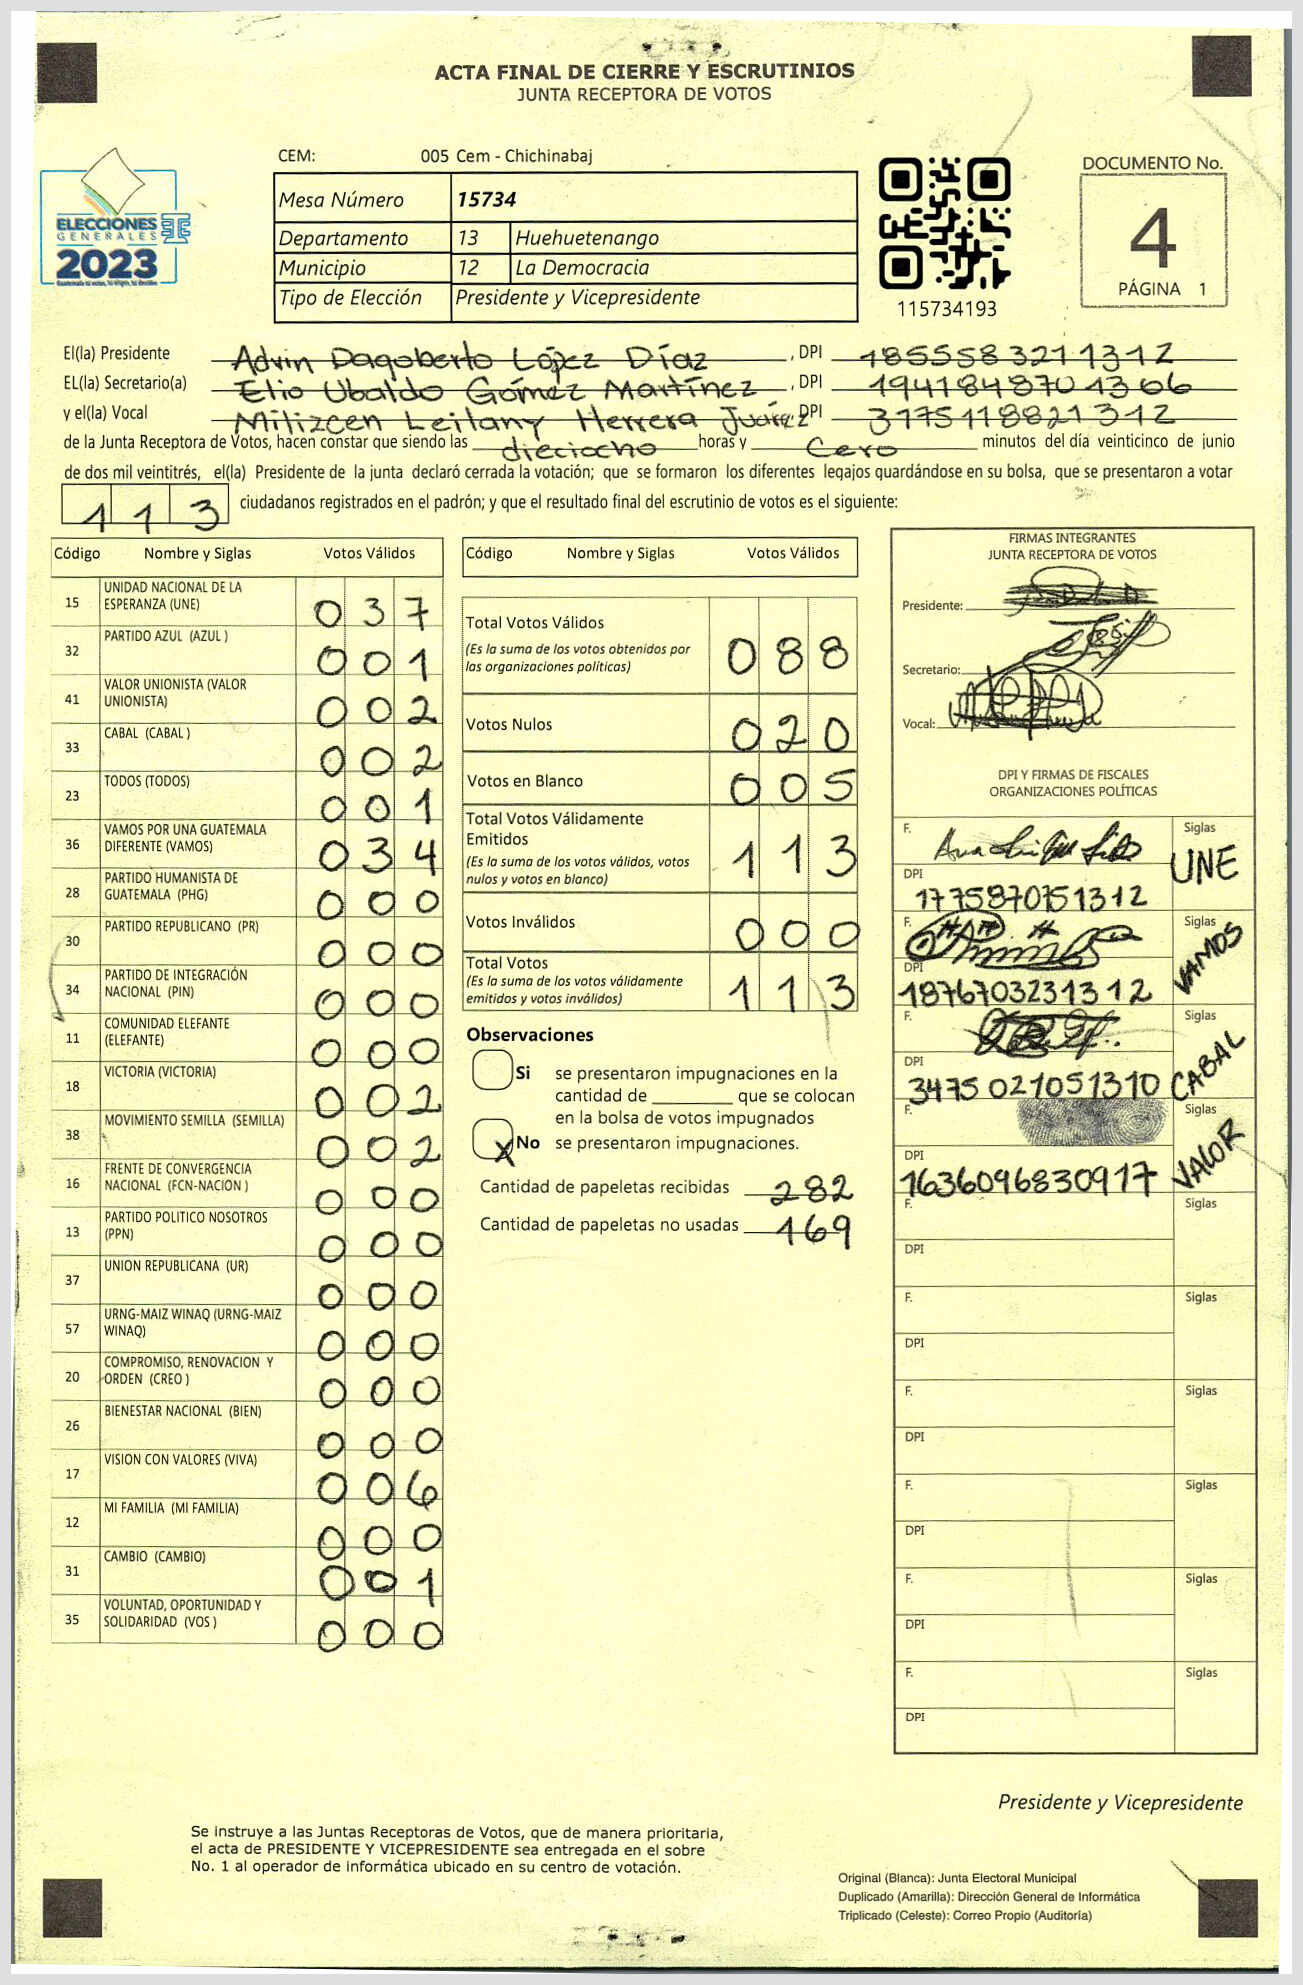 ACTA FINAL DE CIERRE Y ESCRUTINIOS
JUNTA RECEPTORA DE VOTOS
ELECCIONES
GENERALES
2023
CEM: 005 Cem - Chichinabaj
Mesa Número 15734
Departamento 13 Huehuetenango
Municipio 12 La Democracia
Tipo de Elección Presidente y Vicepresidente
115734193
DOCUMENTO No.
4
PÁGINA 1
El(la) Presidente Advin Dagoberto López Díaz , DPI 1855583211312
EL(la) Secretario(a) Elio Ubaldo Gómez Martínez , DPI 1941848701306
y el(la) Vocal Mitizcen Leilany Herrera Juárez DPI 3175118821312
de la Junta Receptora de Votos, hacen constar que siendo las dieciocho horas y Cero minutos del día veinticinco de junio
de dos mil veintitrés, el(la) Presidente de la junta declaró cerrada la votación; que se formaron los diferentes legajos guardándose en su bolsa, que se presentaron a votar
113 ciudadanos registrados en el padrón; y que el resultado final del escrutinio de votos es el siguiente:
Código Nombre y Siglas Votos Válidos
15 UNIDAD NACIONAL DE LA ESPERANZA (UNE) 037
32 PARTIDO AZUL (AZUL ) 001
41 VALOR UNIONISTA (VALOR UNIONISTA) 002
33 CABAL (CABAL ) 002
23 TODOS (TODOS) 001
36 VAMOS POR UNA GUATEMALA DIFERENTE (VAMOS) 034
28 PARTIDO HUMANISTA DE GUATEMALA (PHG) 000
30 PARTIDO REPUBLICANO (PR) 000
34 PARTIDO DE INTEGRACIÓN NACIONAL (PIN) 000
11 COMUNIDAD ELEFANTE (ELEFANTE) 000
18 VICTORIA (VICTORIA) 002
38 MOVIMIENTO SEMILLA (SEMILLA) 002
16 FRENTE DE CONVERGENCIA NACIONAL (FCN-NACION ) 000
13 PARTIDO POLITICO NOSOTROS (PPN) 000
37 UNION REPUBLICANA (UR) 000
57 URNG-MAIZ WINAQ (URNG-MAIZ WINAQ) 000
20 COMPROMISO, RENOVACION Y ORDEN (CREO ) 000
26 BIENESTAR NACIONAL (BIEN) 000
17 VISION CON VALORES (VIVA) 006
12 MI FAMILIA (MI FAMILIA) 000
31 CAMBIO (CAMBIO) 001
35 VOLUNTAD, OPORTUNIDAD Y SOLIDARIDAD (VOS ) 000
Código Nombre y Siglas Votos Válidos
Total Votos Válidos 088
(Es la suma de los votos obtenidos por
las organizaciones políticas)
Votos Nulos 020
Votos en Blanco 005
Total Votos Válidamente
Emitidos 113
(Es la suma de los votos válidos, votos
nulos y votos en blanco)
Votos Inválidos 000
Total Votos 113
(Es la suma de los votos válidamente
emitidos y votos inválidos)
Observaciones
Si se presentaron impugnaciones en la
cantidad de ________ que se colocan
en la bolsa de votos impugnados
X No se presentaron impugnaciones.
Cantidad de papeletas recibidas 282
Cantidad de papeletas no usadas 169
FIRMAS INTEGRANTES
JUNTA RECEPTORA DE VOTOS
Presidente:
Secretario:
Vocal:
DPI Y FIRMAS DE FISCALES
ORGANIZACIONES POLÍTICAS
F. Siglas UNE
DPI 1775870751312
F. Siglas VAMOS
DPI 1876703231312
F. Siglas CABAL
DPI 3475021051310
F. Siglas VALOR
DPI 1636096830917
F. Siglas
DPI
F. Siglas
DPI
F. Siglas
DPI
F. Siglas
DPI
F. Siglas
DPI
F. Siglas
DPI
Presidente y Vicepresidente
Se instruye a las Juntas Receptoras de Votos, que de manera prioritaria,
el acta de PRESIDENTE Y VICEPRESIDENTE sea entregada en el sobre
No. 1 al operador de informática ubicado en su centro de votación.
Original (Blanca): Junta Electoral Municipal
Duplicado (Amarilla): Dirección General de Informática
Triplicado (Celeste): Correo Propio (Auditoría)